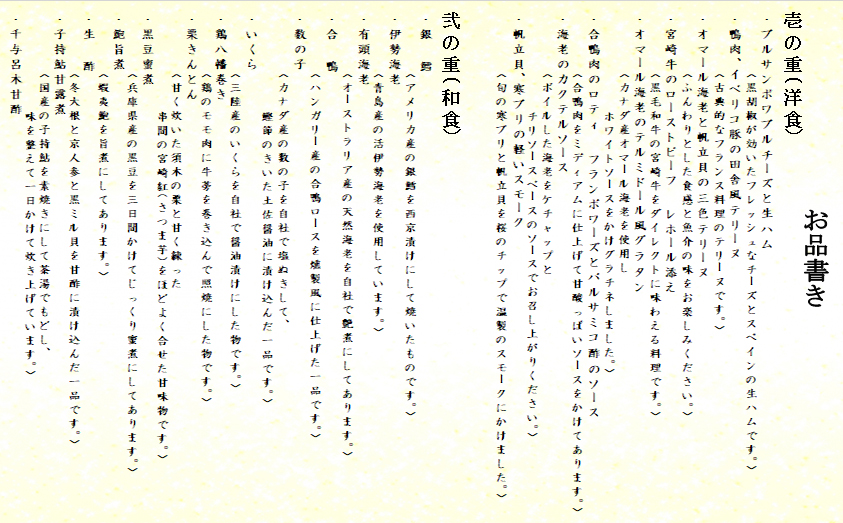 お品書き
壱の重(洋食)
・ブルサンポワブルチーズと生ハム
(黒胡椒が効いたフレッシュなチーズとスペインの生ハムです。)
・鴨肉、イベリコ豚の田舎風テリーヌ
(古典的なフランス料理のテリーヌです。)
・オマール海老と帆立貝の三色テリーヌ
(ふんわりとした食感と魚介の味をお楽しみください。)
・宮崎牛のローストビーフ レホール添え
(黒毛和牛の宮崎牛をダイレクトに味わえる料理です。)
・オマール海老のテルミドール風グラタン
(カナダ産オマール海老を使用し
ホワイトソースをかけグラチネしました。)
・合鴨肉のロティ フランボワーズとバルサミコ酢のソース
(合鴨肉をミディアムに仕上げて甘酸っぱいソースをかけてあります。)
・海老のカクテルソース
(ボイルした海老をケチャップと
チリソースベースのソースでお召し上がりください。)
・帆立貝、寒ブリの軽いスモーク
(旬の寒ブリと帆立貝を桜のチップで温製のスモークにかけました。)
弐の重(和食)
・銀鱈
(アメリカ産の銀鱈を西京漬けにして焼いたものです。)
・伊勢海老
(青島産の活伊勢海老を使用しています。)
・有頭海老
(オーストラリア産の天然海老を自社で艶煮にしてあります。)
・合鴨
(ハンガリー産の合鴨ロースを燻製風に仕上げた一品です。)
・数の子
(カナダ産の数の子を自社で塩ぬきして、
鰹節のきいた土佐醤油に漬け込んだ一品です。)
・いくら
(三陸産のいくらを自社で醤油漬けにした物です。)
・鶏八幡巻き
(鶏のモモ肉に牛蒡を巻き込んで照焼にした物です。)
・栗きんとん
(甘く炊いた須木の栗と甘く練った
串間の宮崎紅(さつま芋)をほどよく合せた甘味物です。)
・黒豆蜜煮
(兵庫県産の黒豆を三日間かけてじっくり蜜煮にしてあります。)
・鮑旨煮
(蝦夷鮑を旨煮にしてあります。)
・生酢
(冬大根と京人参と黒ミル貝を甘酢に漬け込んだ一品です。)
・子持鮎甘露煮
(国産の子持鮎を素焼きにして茶湯でもどし、
味を整えて一日かけて炊き上げています。)
・千与呂木甘酢